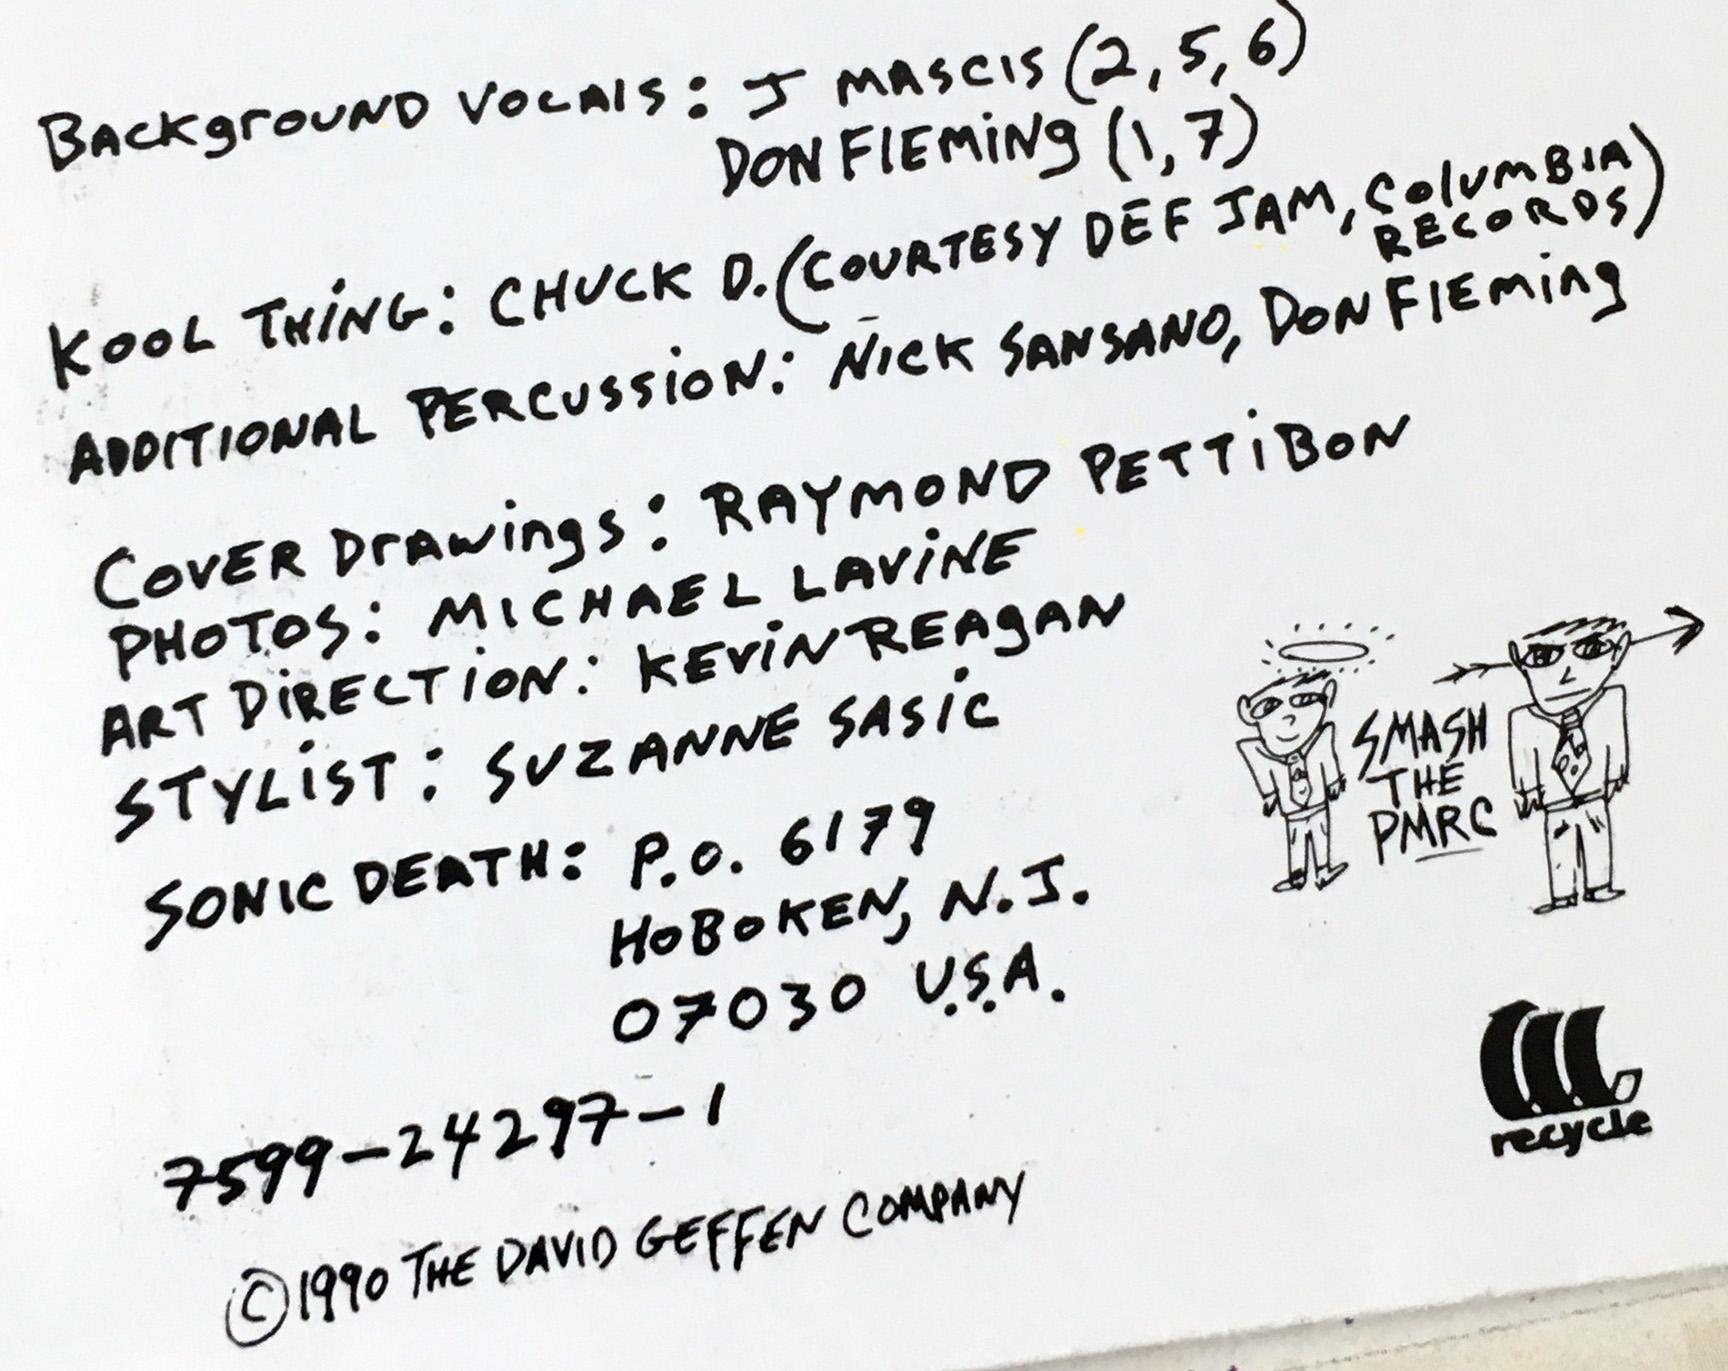 BACKgrOUND VOCAlS: J MASCIS (2, 5, 6)
DON FlEMiNg (1, 7)
KOOL THiNG: CHUCK D. (COURTESY DEF JAM, COlUMBIA
RECORDS)
ADDITIONAL PERCUSSiON: NiCK SANSANO, DON FlEMing
COVER DrAwings: RAYMOND PETTiBON
PHOTOS: MICHAEL LAViNE
ART DiRECTiON: KEViN REAgAN
STYLiST: SUZANNE SASiC
SONIC DEATH: P.O. 6179
HOBOKEN, N.J.
07030 U.S.A.
7599-24297-1
©1990 THE DAVID GEFFEN COMPANY
SMASH
THE
PMRC
recycle